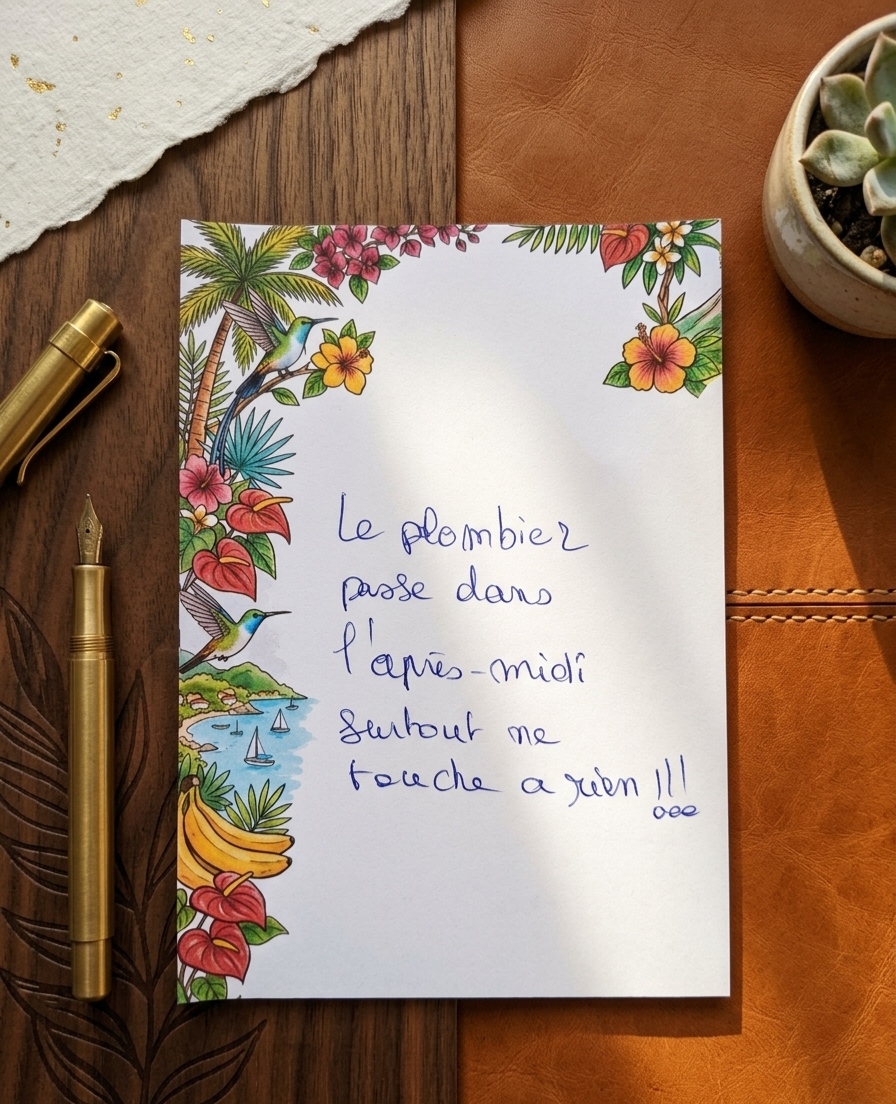 Le plombier
passe dans
l'après-midi
surtout ne
touche a rien !!!